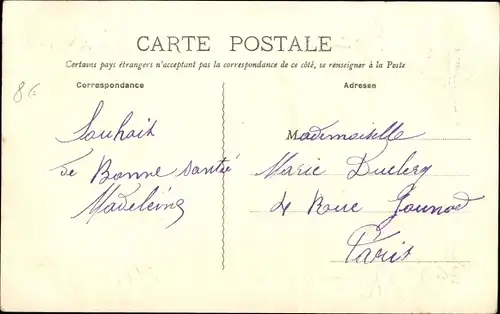 CARTE POSTALE
Certains pays étrangers n'acceptant pas la correspondance de ce côté, se renseigner à la Poste
Correspondance
Adresse
86
Souhait
de Bonne Santé
Madeleine
Mademoiselle
Marie Duclerq
4 Roue Gounod
Paris